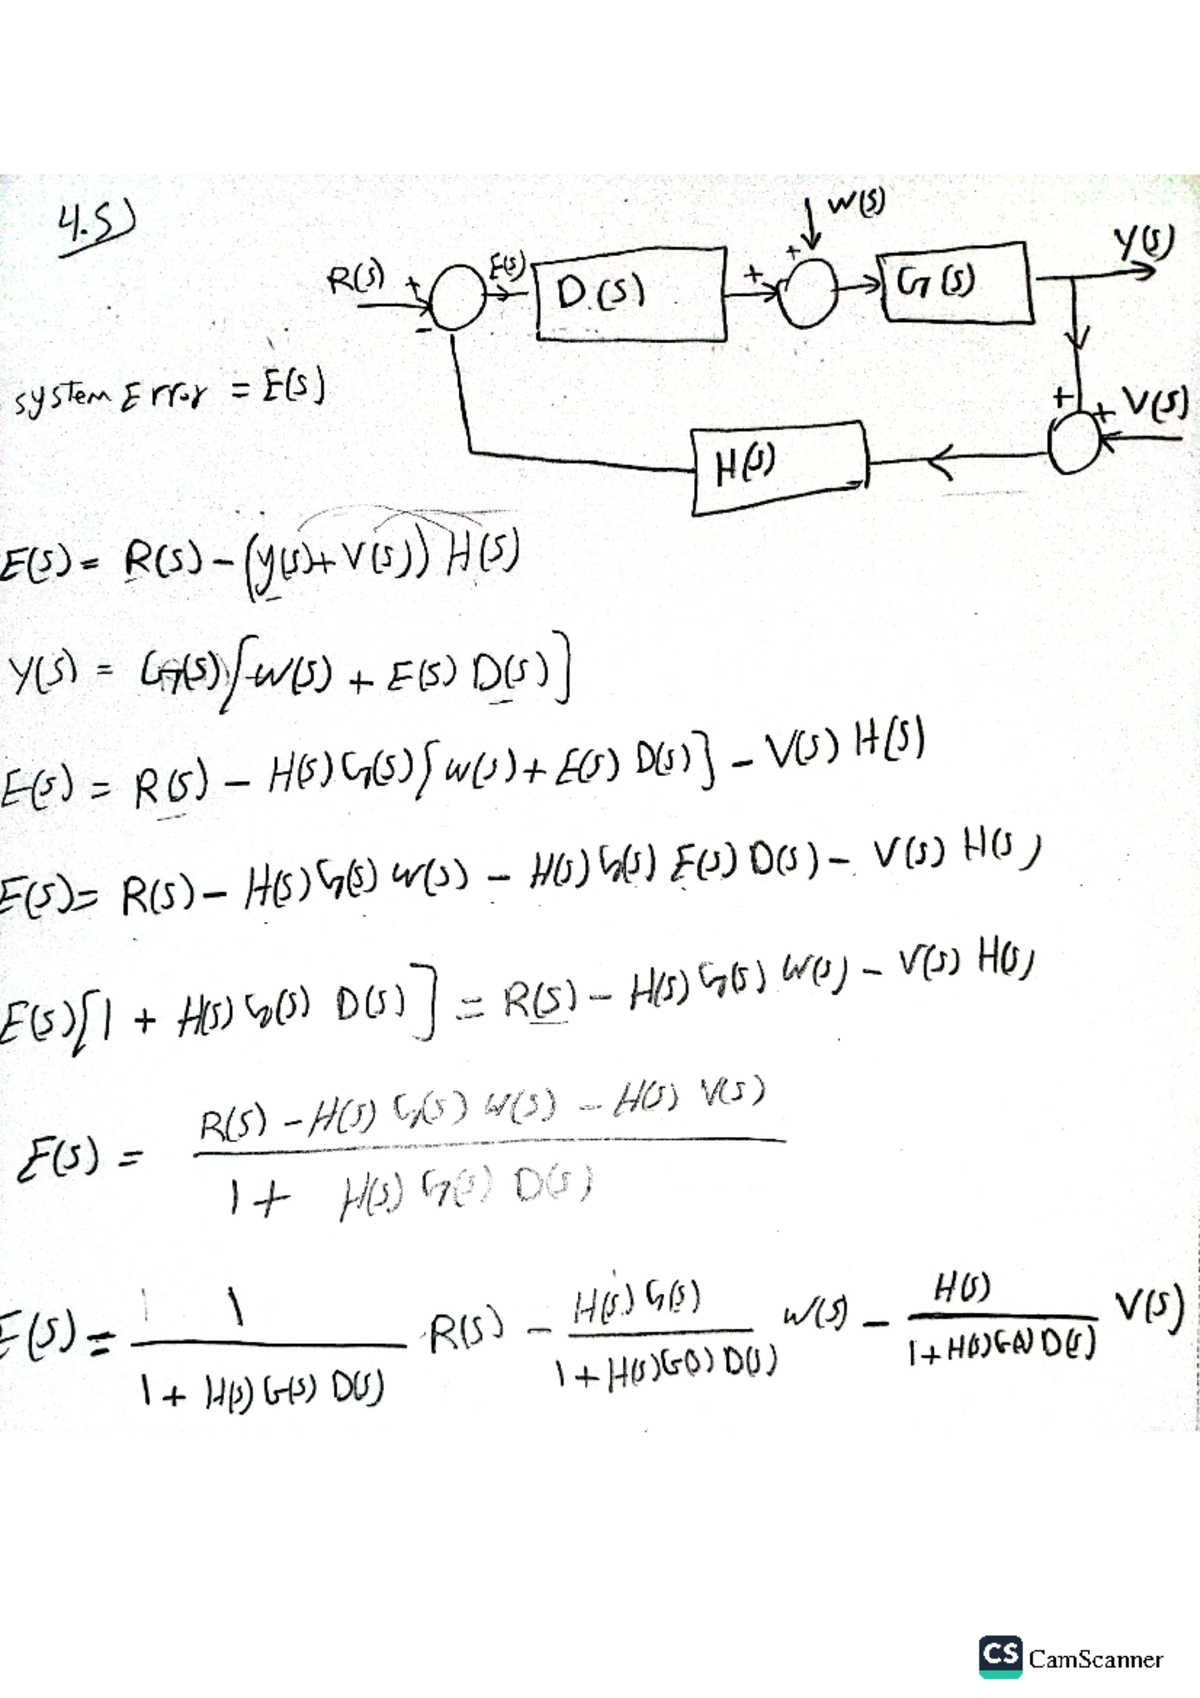 4.5)
W(S)
R(S) + E(S) D(S) + + G(S) Y(S)
-
system Error = E(S)
+ + V(S)
H(S)
E(S) = R(S) - (Y(S) + V(S)) H(S)
Y(S) = G(S) [W(S) + E(S) D(S)]
E(S) = R(S) - H(S) G(S) [W(S) + E(S) D(S)] - V(S) H(S)
E(S) = R(S) - H(S) G(S) W(S) - H(S) G(S) E(S) D(S) - V(S) H(S)
E(S) [1 + H(S) G(S) D(S)] = R(S) - H(S) G(S) W(S) - V(S) H(S)
R(S) - H(S) G(S) W(S) - H(S) V(S)
E(S) =
1 + H(S) G(S) D(S)
1 H(S) G(S) H(S)
E(S) = R(S) - W(S) - V(S)
1 + H(S) G(S) D(S) 1 + H(S) G(S) D(S) 1 + H(S) G(S) D(S)
CS CamScanner